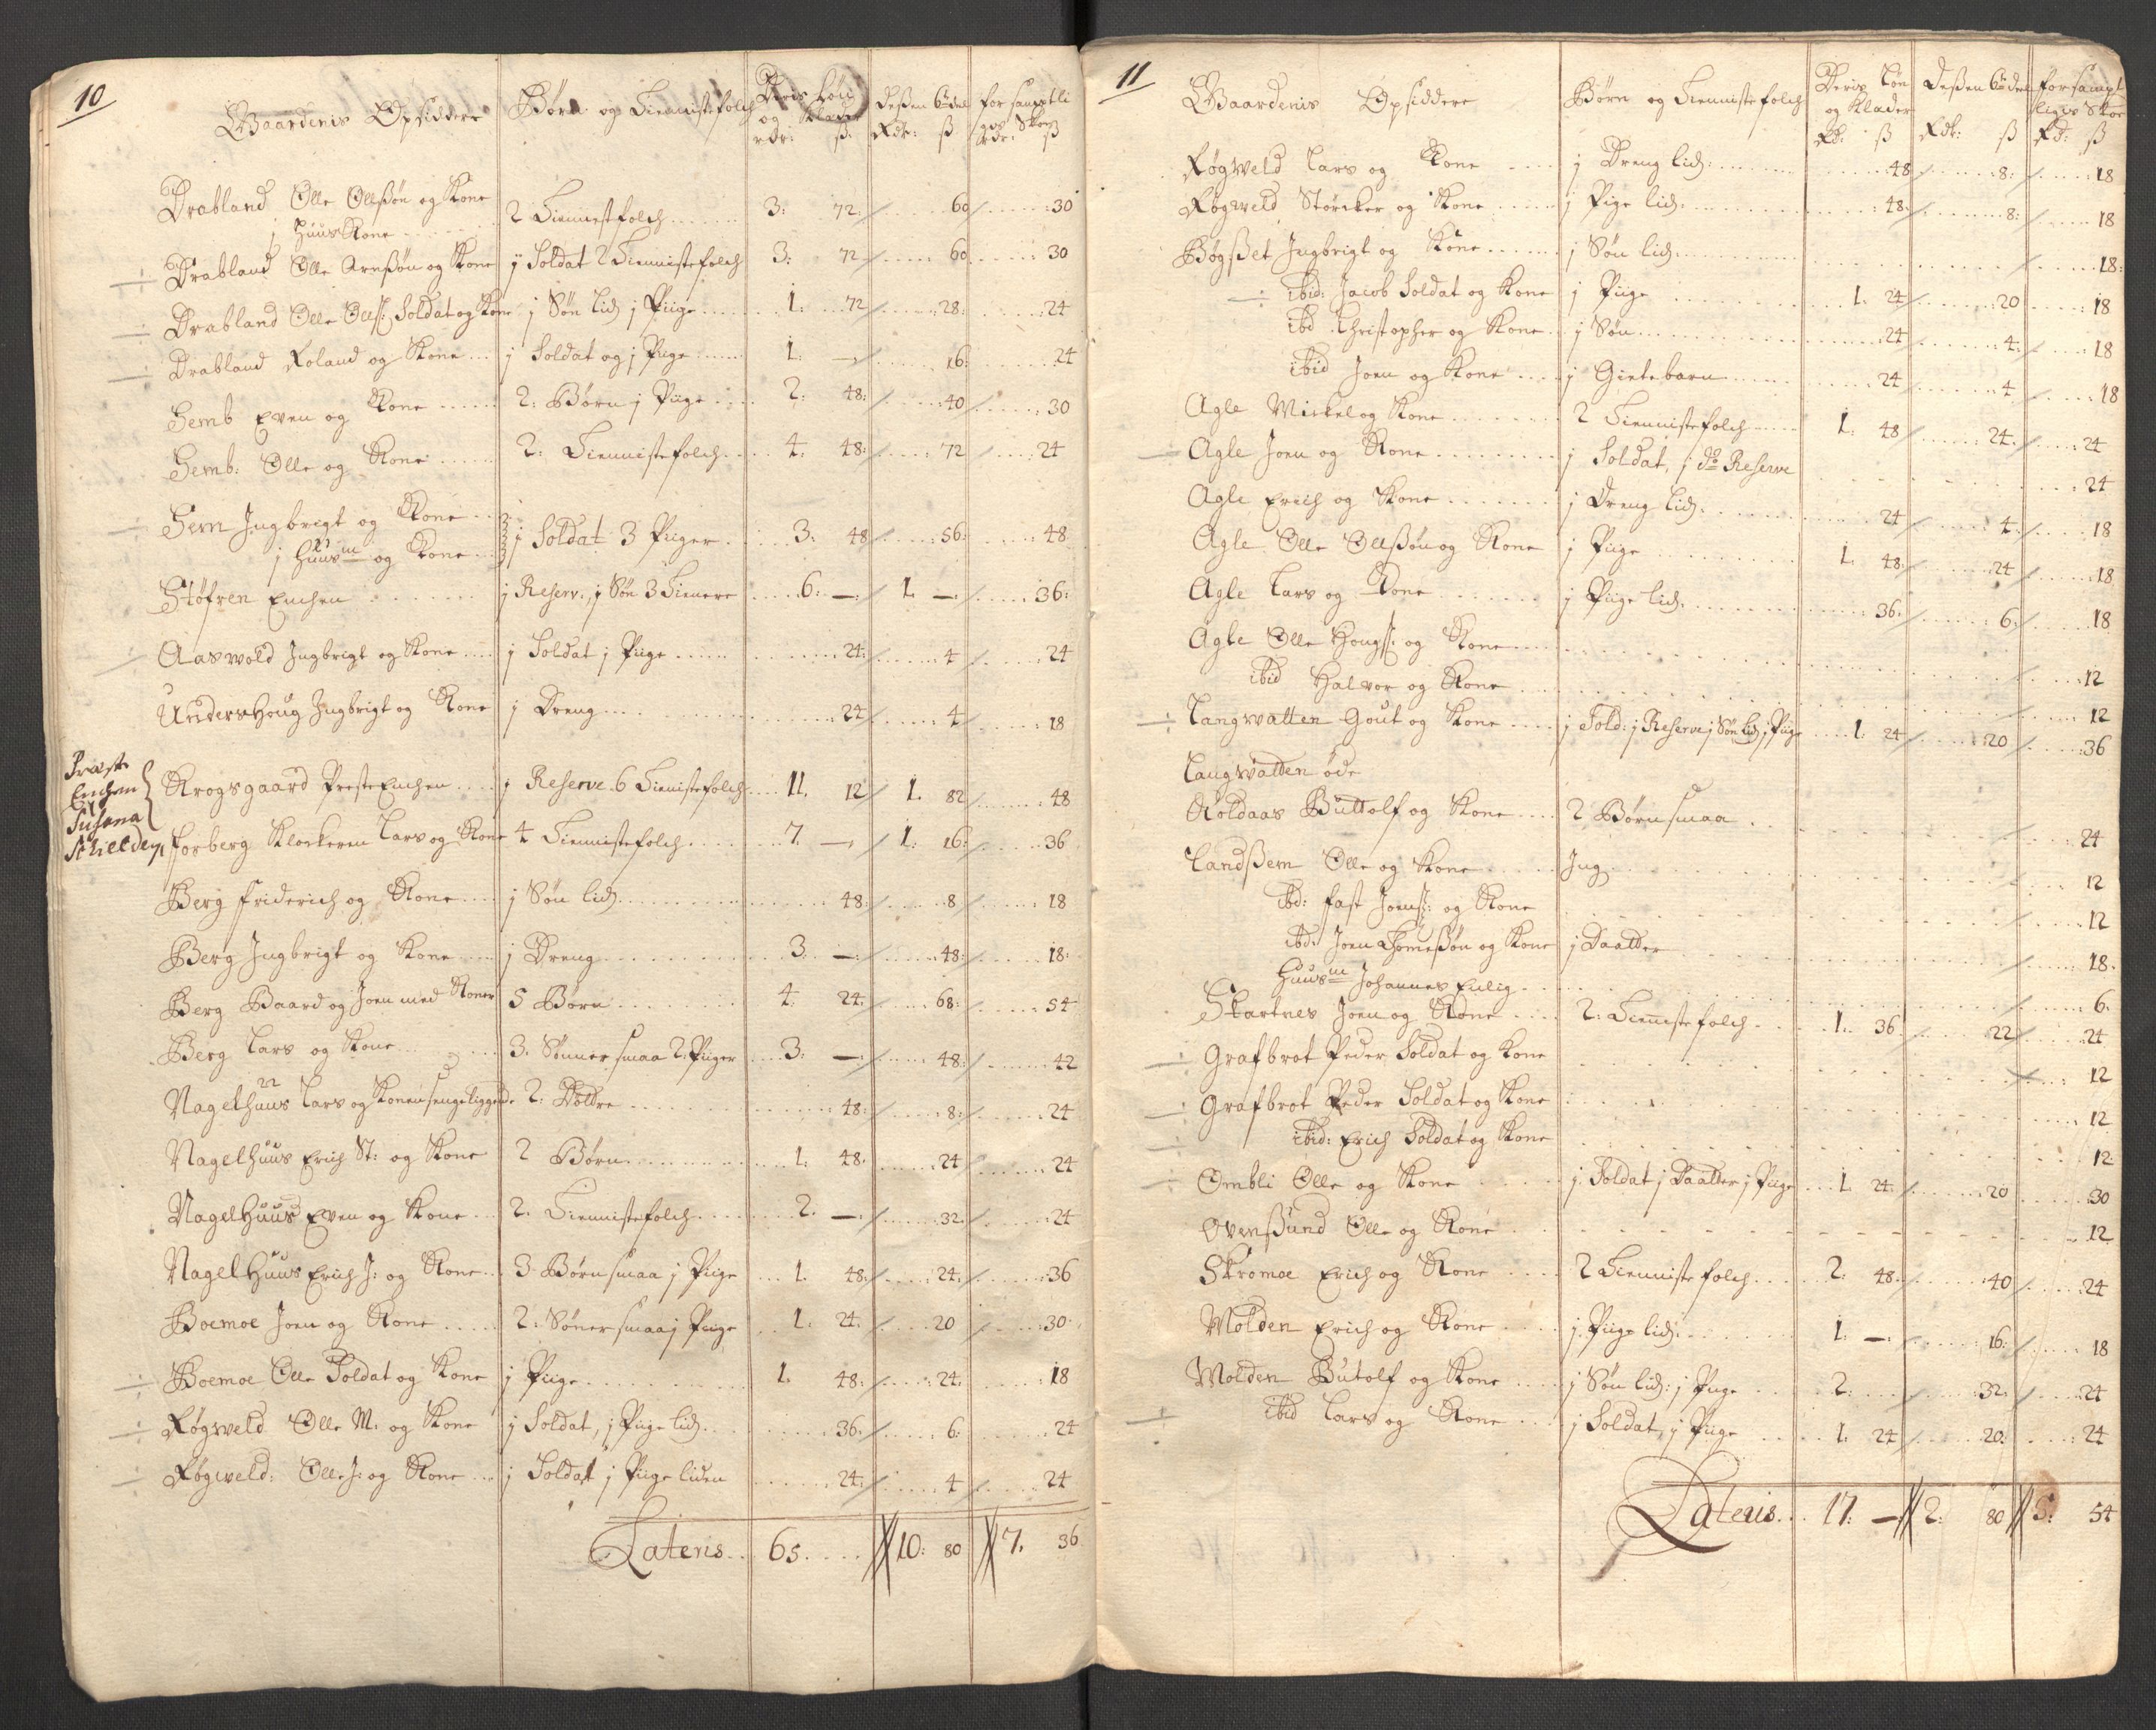 10
Gaardenis Opsiddere Børn og Tiennistefolch Deris Løn og Klæder Dessen 6te deel for samptlige Skoe
rdr: ß: Rdr: ß rdr: ß
Drabland Olle Ollßøn og Kone
j Huus Kone 2 Tiennestfolch 3: 72: 60 30
Drabland Olle Arnßøn og Kone j Soldat 2 Tiennistefolch 3: 72 60 30
Drabland Olle Ollß: Soldat og Kone j Søn lid j Piige 1: 72 28: 24
Drabland Roland og Kone j Soldat og j Piige 1: — 16: 24
Hemb Even og Kone 2: Børn j Piige 2: 48: 40 30
Hemb: Olle og Kone 2: Tiennistefolch 4: 48: 72 24
Hem Ingbrigt og Kone
j Huusm og Kone j Soldat 3 Piiger 3: 48 56: 48
Støfren Enchen j Reserv:, j Søn 3 Tienere 6: — 1 — 36:
Aaswold Ingbrigt og Kone j Soldat j Piige 24: 4 24
Undershoug Ingbrigt og Kone j Dreng 24 4 18
Præste Enchen Susana Schielderup
Krogsgaard Preste Enchen j Reserve 6 Tienistefolch 11. 12 1. 82 48
Forberg Klockeren Lars og Kone 4 Tiennistefolch 7. — 1: 16: 36
Berg Friderich og Kone j Søn lid 48: 8 18
Berg Ingbrigt og Kone j Dreng 3. —: 48: 18:
Berg Baard og Joen med Koner 5 Børn 4: 24: 68: 54
Berg Lars og Kone 3. Sønner smaa 2: Piiger 3: — 48: 42
Nagelhuus Lars og Konen sengeliggende 2: Døttre 48: 8: 24
Nagelhuus Erich St: og Kone 2 Børn 1: 48. 24 24
Nagelhuus Even og Kone 2. Tiennistefolch 2. — 32. 24
Nagelhuus Erich J: og Kone 3 Børn smaa j Piige 1. 48: 24: 36
Boemoe Joen og Kone 2: Søner smaa j Piige 1: 24: 20 30
Boemoe Olle Soldat og Kone j Piige 1. 48: 24: 18
Røgweld Olle M: og Kone j Soldat, j Piige lid 36. 6: 24
Røgweld: Olle J: og Kone j Soldat j Piige liden 24: 4 24
Lateris 65 10: 80 7. 36
11
Gaardenis Opsiddere Børn og Tienniste folch Deris Løn og Klæder Dessen 6te deel for samptliges Skoe
Rd: ß Rdr: ß Rd: ß
Røgweld Lars og Kone j Dreng lid: 48 8: 18
Røgweld Størcker og Kone j Pige lid: 48: 8: 18
Bøgßet Ingbrigt og Kone j Søn lid. 18:
ibid: Jacob Soldat og Kone j Piige 1. 24 20 18
ibd Christopher og Kone j Søn 24 4. 18
ibid Joen og Kone j Gietebarn 24 4 18
Agle Mickel og Kone 2 Tiennistefolch 1. 48 24. 24
Agle Joen og Kone j Soldat, j do Reserve 24
Agle Erich og Kone j Dreng lid. 24 4. 18
Agle Olle Ollßøn og Kone j Piige 1. 48: 24 18
Agle Lars og Kone j Piige lid. 36. 6. 18
Agle Olle Hougß: og Kone 12
ibid Halvor og Kone 12
Langwatten Gout og Kone j Sold: j Reserve j Søn lid j Piige 1: 24 20 36
Langwatten øde
Koldaas Buttolf og Kone 2 Børn smaa 24
Landßem Olle og Kone Ing 12
ibd: Fast Joensß: og Kone 12
ibd: Joen Thomeßøn og Kone j Daatter 18.
Huusm Johannes Enlig 6.
Skartnes Joen og Kone 2: Tiennistefolch 1. 36 22 24
Grafbrot Peder Soldat og Kone 12
Grafbrot Peder Soldat og Kone 12
ibid: Erich Soldat og Kone 12
Ombli Olle og Kone j Soldat j Daatter j Piige 1. 24 20 30
Ovenßund Olle og Kone 12
Skromoe Erich og Kone 2 Tienniste folch 2: 48: 40 24
Molden Erich og Kone j Piige lid. 1: — 16: 18
Molden Butolf og Kone j Søn lid: j Piige 2: 32: 24
ibid Lars og Kone j Soldat, j Piige 1: 24 20: 24
Lateris 17: — 2: 80 5: 54